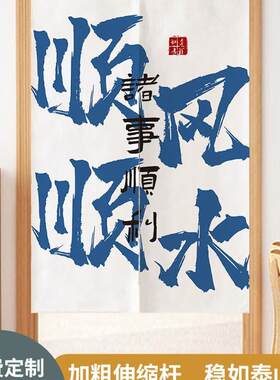 顺风
顺水
諸事順利
費定制
加粗伸缩杆 稳如泰山